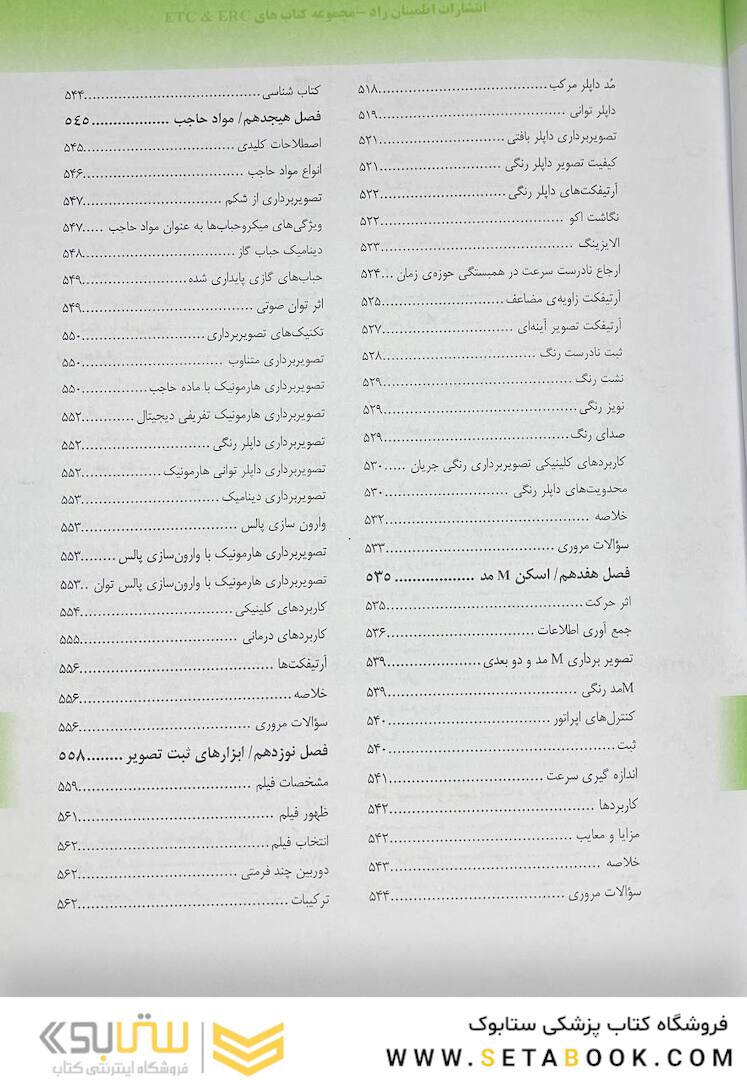 انتشارات اطمینان راد – مجموعه کتاب های ETC & ERC
مُد داپلر مرکب ۵۱۸
داپلر توانی ۵۱۹
تصویربرداری داپلر بافتی ۵۲۱
کیفیت تصویر داپلر رنگی ۵۲۱
آرتیفکت‌های داپلر رنگی ۵۲۲
نگاشت اکو ۵۲۲
الایزینگ ۵۲۳
ارجاع نادرست سرعت در همبستگی حوزه‌ی زمان ۵۲۴
آرتیفکت زاویه‌ی مضاعف ۵۲۵
آرتیفکت تصویر آینه‌ای ۵۲۷
ثبت نادرست رنگ ۵۲۸
نشت رنگ ۵۲۹
نویز رنگی ۵۲۹
صدای رنگ ۵۲۹
کاربردهای کلینیکی تصویربرداری رنگی جریان ۵۳۰
محدویت‌های داپلر رنگی ۵۳۰
خلاصه ۵۳۲
سؤالات مروری ۵۳۳
فصل هفدهم/ اسکن M مد ۵۳۵
اثر حرکت ۵۳۵
جمع آوری اطلاعات ۵۳۶
تصویر برداری M مد و دو بعدی ۵۳۹
Mمد رنگی ۵۳۹
کنترل‌های اپراتور ۵۴۰
ثبت ۵۴۰
اندازه گیری سرعت ۵۴۱
کاربردها ۵۴۲
مزایا و معایب ۵۴۲
خلاصه ۵۴۳
سؤالات مروری ۵۴۴
کتاب شناسی ۵۴۴
فصل هیجدهم/ مواد حاجب ۵۴۵
اصطلاحات کلیدی ۵۴۵
انواع مواد حاجب ۵۴۶
تصویربرداری از شکم ۵۴۷
ویژگی‌های میکروحباب‌ها به عنوان مواد حاجب ۵۴۷
دینامیک حباب گاز ۵۴۸
حباب‌های گازی پایداری شده ۵۴۹
اثر توان صوتی ۵۴۹
تکنیک‌های تصویربرداری ۵۵۰
تصویربرداری متناوب ۵۵۰
تصویربرداری هارمونیک با ماده حاجب ۵۵۰
تصویربرداری هارمونیک تفریقی دیجیتال ۵۵۲
تصویربرداری داپلر رنگی ۵۵۲
تصویربرداری داپلر توانی هارمونیک ۵۵۲
تصویربرداری دینامیک ۵۵۳
وارون سازی پالس ۵۵۳
تصویربرداری هارمونیک با وارون‌سازی پالس ۵۵۳
تصویربرداری هارمونیک با وارون‌سازی پالس توان ۵۵۳
کاربردهای کلینیکی ۵۵۴
کاربردهای درمانی ۵۵۵
آرتیفکت‌ها ۵۵۶
خلاصه ۵۵۶
سؤالات مروری ۵۵۶
فصل نوزدهم/ ابزارهای ثبت تصویر ۵۵۸
مشخصات فیلم ۵۵۹
ظهور فیلم ۵۶۱
انتخاب فیلم ۵۶۲
دوربین چند فرمتی ۵۶۲
ترکیبات ۵۶۲
فروشگاه کتاب پزشکی ستابوک
WWW.SETABOOK.COM
ستابوک
فروشگاه اینترنتی کتاب